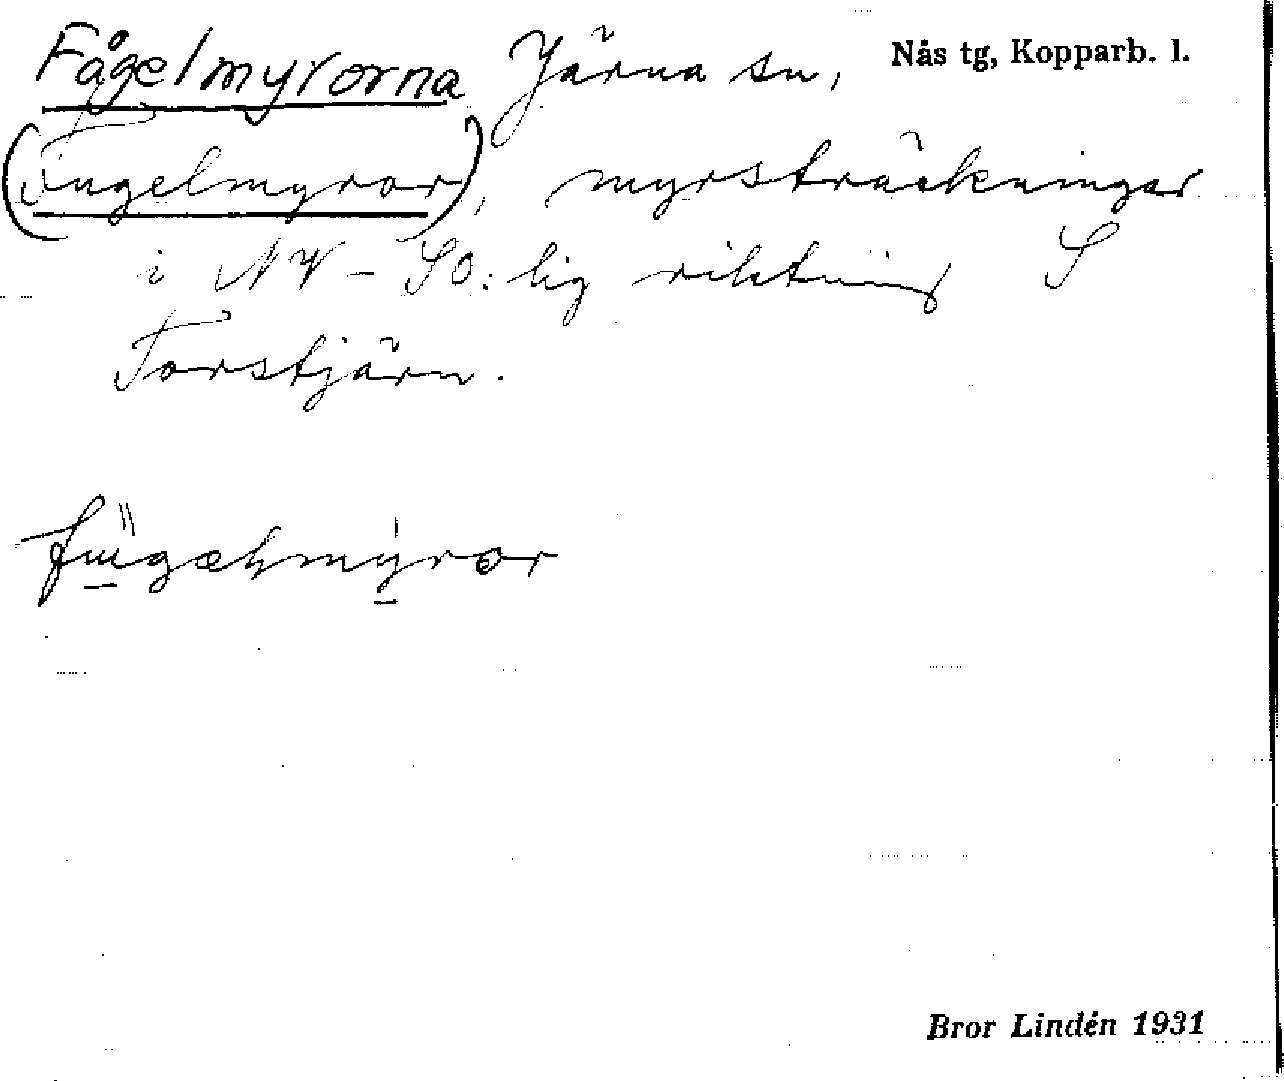 Fågelmyrorna Järna sn, Nås tg, Kopparb. l.
(Fugelmyror), myrsträckningar
i NV - SO:lig riktning S
Torstjärn.
fügælmýror
Bror Lindén 1931